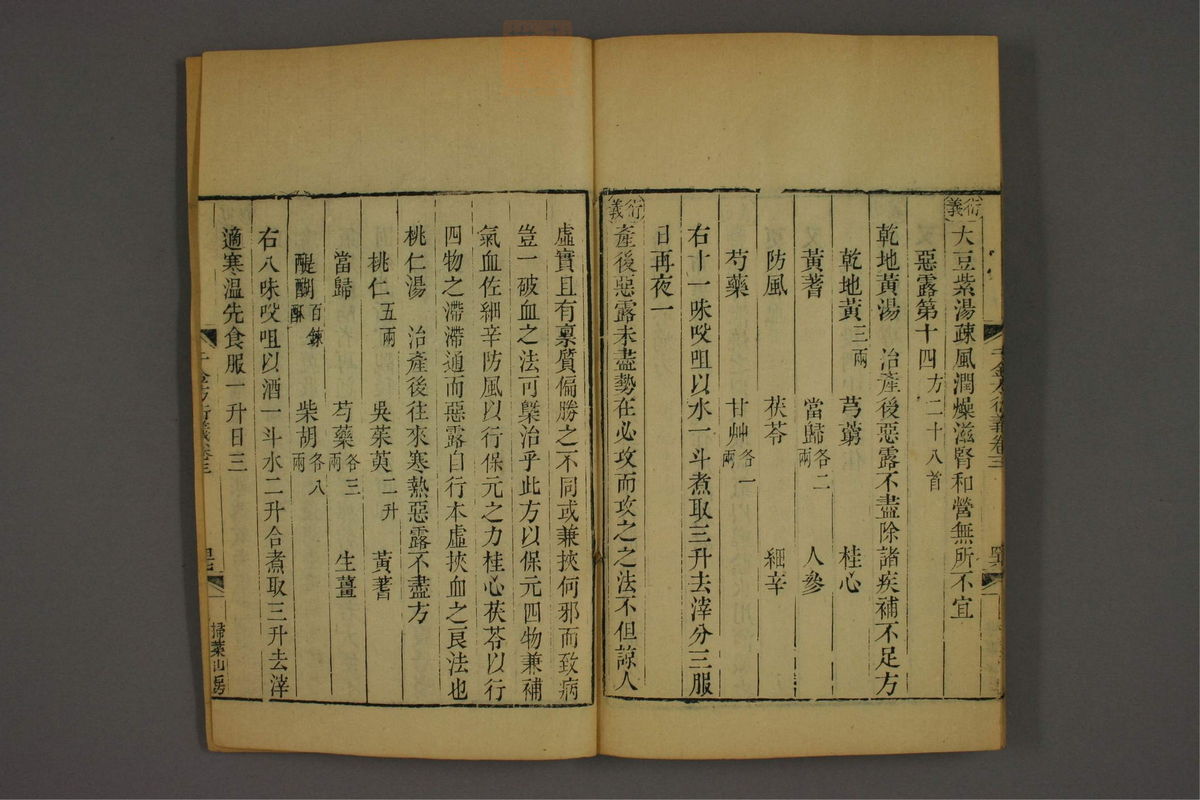 衍義 大豆紫湯疎風潤燥滋腎和營無所不宜
惡露第十四方二十八首
乾地黃湯 治產後惡露不盡除諸疾補不足方
乾地黃三兩 芎藭 桂心
黃蓍 當歸各二兩 人參
防風 茯苓 細辛
芍藥 甘艸各一兩
右十一味㕮咀以水一斗煮取三升去滓分三服
日再夜一
衍義 產後惡露未盡勢在必攻而攻之之法不但諒人
虛實且有稟質偏勝之不同或兼挾何邪而致病
豈一破血之法可槩治乎此方以保元四物兼補
氣血佐細辛防風以行保元之力桂心茯苓以行
四物之滯滯通而惡露自行本虛挾血之良法也
桃仁湯 治產後往來寒熱惡露不盡方
桃仁五兩 吳茱萸二升 黃蓍
當歸 芍藥各三兩 生薑
醍醐百鍊酥 柴胡各八兩
右八味㕮咀以酒一斗水二升合煮取三升去滓
適寒溫先食服一升日三
千金方衍義卷三
掃葉山房